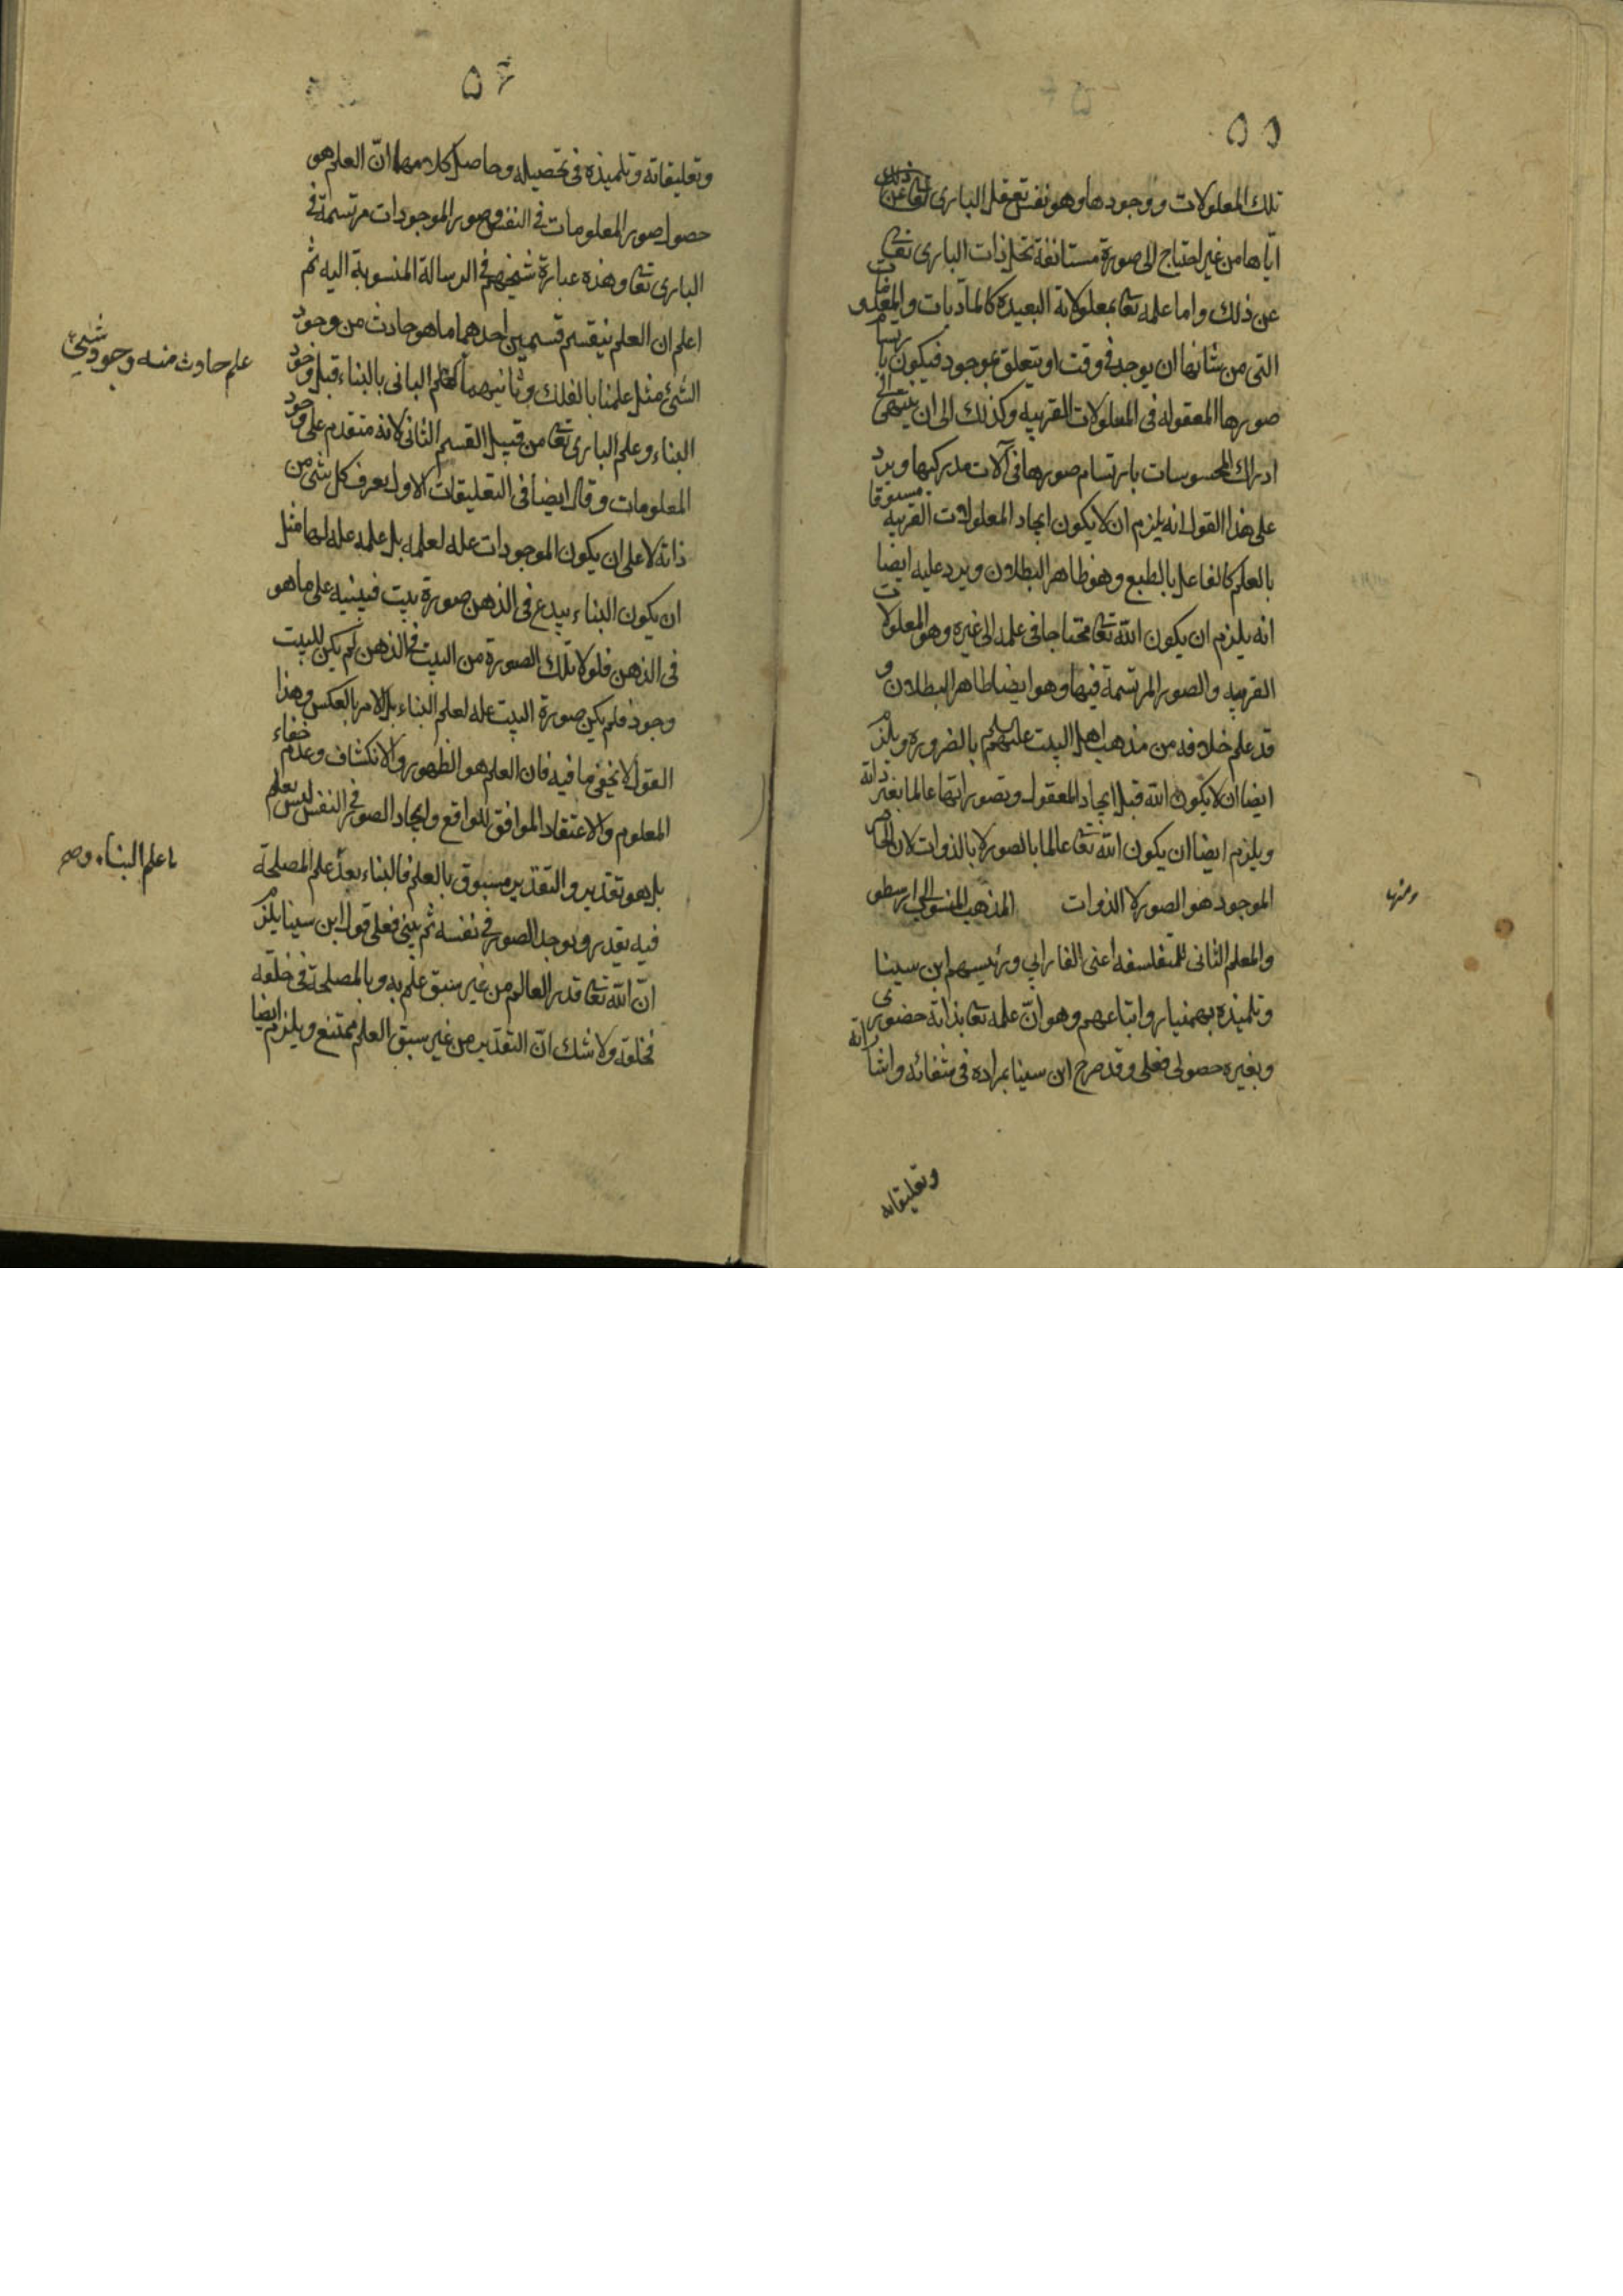 ٥٥
تلك المعلولات ووجودها وهو نفس تعقل البارى تعا
اياها من غير احتياج الى صورة مستانفة تحل ذات البارى تعا
عن ذلك واما علمه تعا بمعلولاته البعيدة كالماديات والمعدومات
التى من شانها ان يوجد فى وقت او يتعلق بموجود فيكون بارتسام
صورها المعقوله فى المعلولات القريبه وكذلك الى ان ينتهى الى
ادراك المحسوسات بارتسام صورها فى آلات مدركيها ويرد
على هذا القول انه يلزم ان لا يكون ايجاد المعلولات القريبه مسبوقا
بالعلم كالفاعل بالطبع وهو ظاهر البطلان ويرد عليه ايضا
انه يلزم ان يكون الله تعا محتاجا فى علمه الى غيره وهو المعلولات
القريبه والصور المرتسمة فيها وهو ايضا ظاهر البطلان و
قد علم خلافه من مذهب اهل البيت عليهم بالضرورة ويلزم
ايضا ان لا يكون الله قبل ايجاد المعقول وتصوراتها عالما بغير ذاته
ويلزم ايضا ان يكون الله تعا عالما بالصور لا بالذوات لان الحاضر
الموجود هو الصور لا الذوات المذهب المنسوب الى ارسطو
ومنها
والمعلم الثانى للمتفلسفه اعنى الفارابي ورئيسهم ابن سينا
وتلميذه بهمنيار واتباعهم وهو انّ علمه تعا بذاته حضورى
وبغيره حصولى فعلى وقد صرح ابن سينا بمراده فى شفائه واشاراته
وتعليقاته
٥٦
وتعليقاته وتلميذه فى تحصيله وحاصل كلامهما انّ العلم هو
حصول صور المعلومات فى النفس وصور الموجودات مرتسمة فى
البارى تعا وهذه عبارة شيخهم فى الرسالة المنسوبة اليه ثم
اعلم ان العلم ينقسم قسمين احدهما ما هو حادث من وجود
الشئ مثل علمنا بالفلك وثانيهما كعلم البانى بالبناء قبل وجود
علم حادث منه وجود شيئ
البناء وعلم البارى تعا من قبيل القسم الثانى لانه متقدم على وجود
المعلومات وقال ايضا فى التعليقات الاول يعرف كل شئ من
ذاته لا على ان يكون الموجودات عله لعلمه بل علمه عله لها مثل
ان يكون البناء يبدع فى الذهن صورة بيت فيبنيه على ما هو
فى الذهن فلولا تلك الصورة من البيت فى الذهن لم يكن للبيت
وجود فلم يكن صورة البيت عله لعلم البناء بل الامر بالعكس وهذا
القول لا يخفى ما فيه فان العلم هو الظهور والانكشاف وعدم خفاء
المعلوم والاعتقاد الموافق للواقع وايجاد الصور فى النفس ليس بعلم
بل هو تقدير والتقدير مسبوق بالعلم فالبناء بعد علم المصلحة
علم البناء
فيه يقدر ويوجد الصور فى نفسه ثم يبنى فعلى قول ابن سينا يلزم
انّ الله تعا قدر العالم من غير سبق علم به وبالمصلحة فى خلقه
فخلقه ولا شك انّ التقدير من غير سبق العلم ممتنع ويلزم ايضا